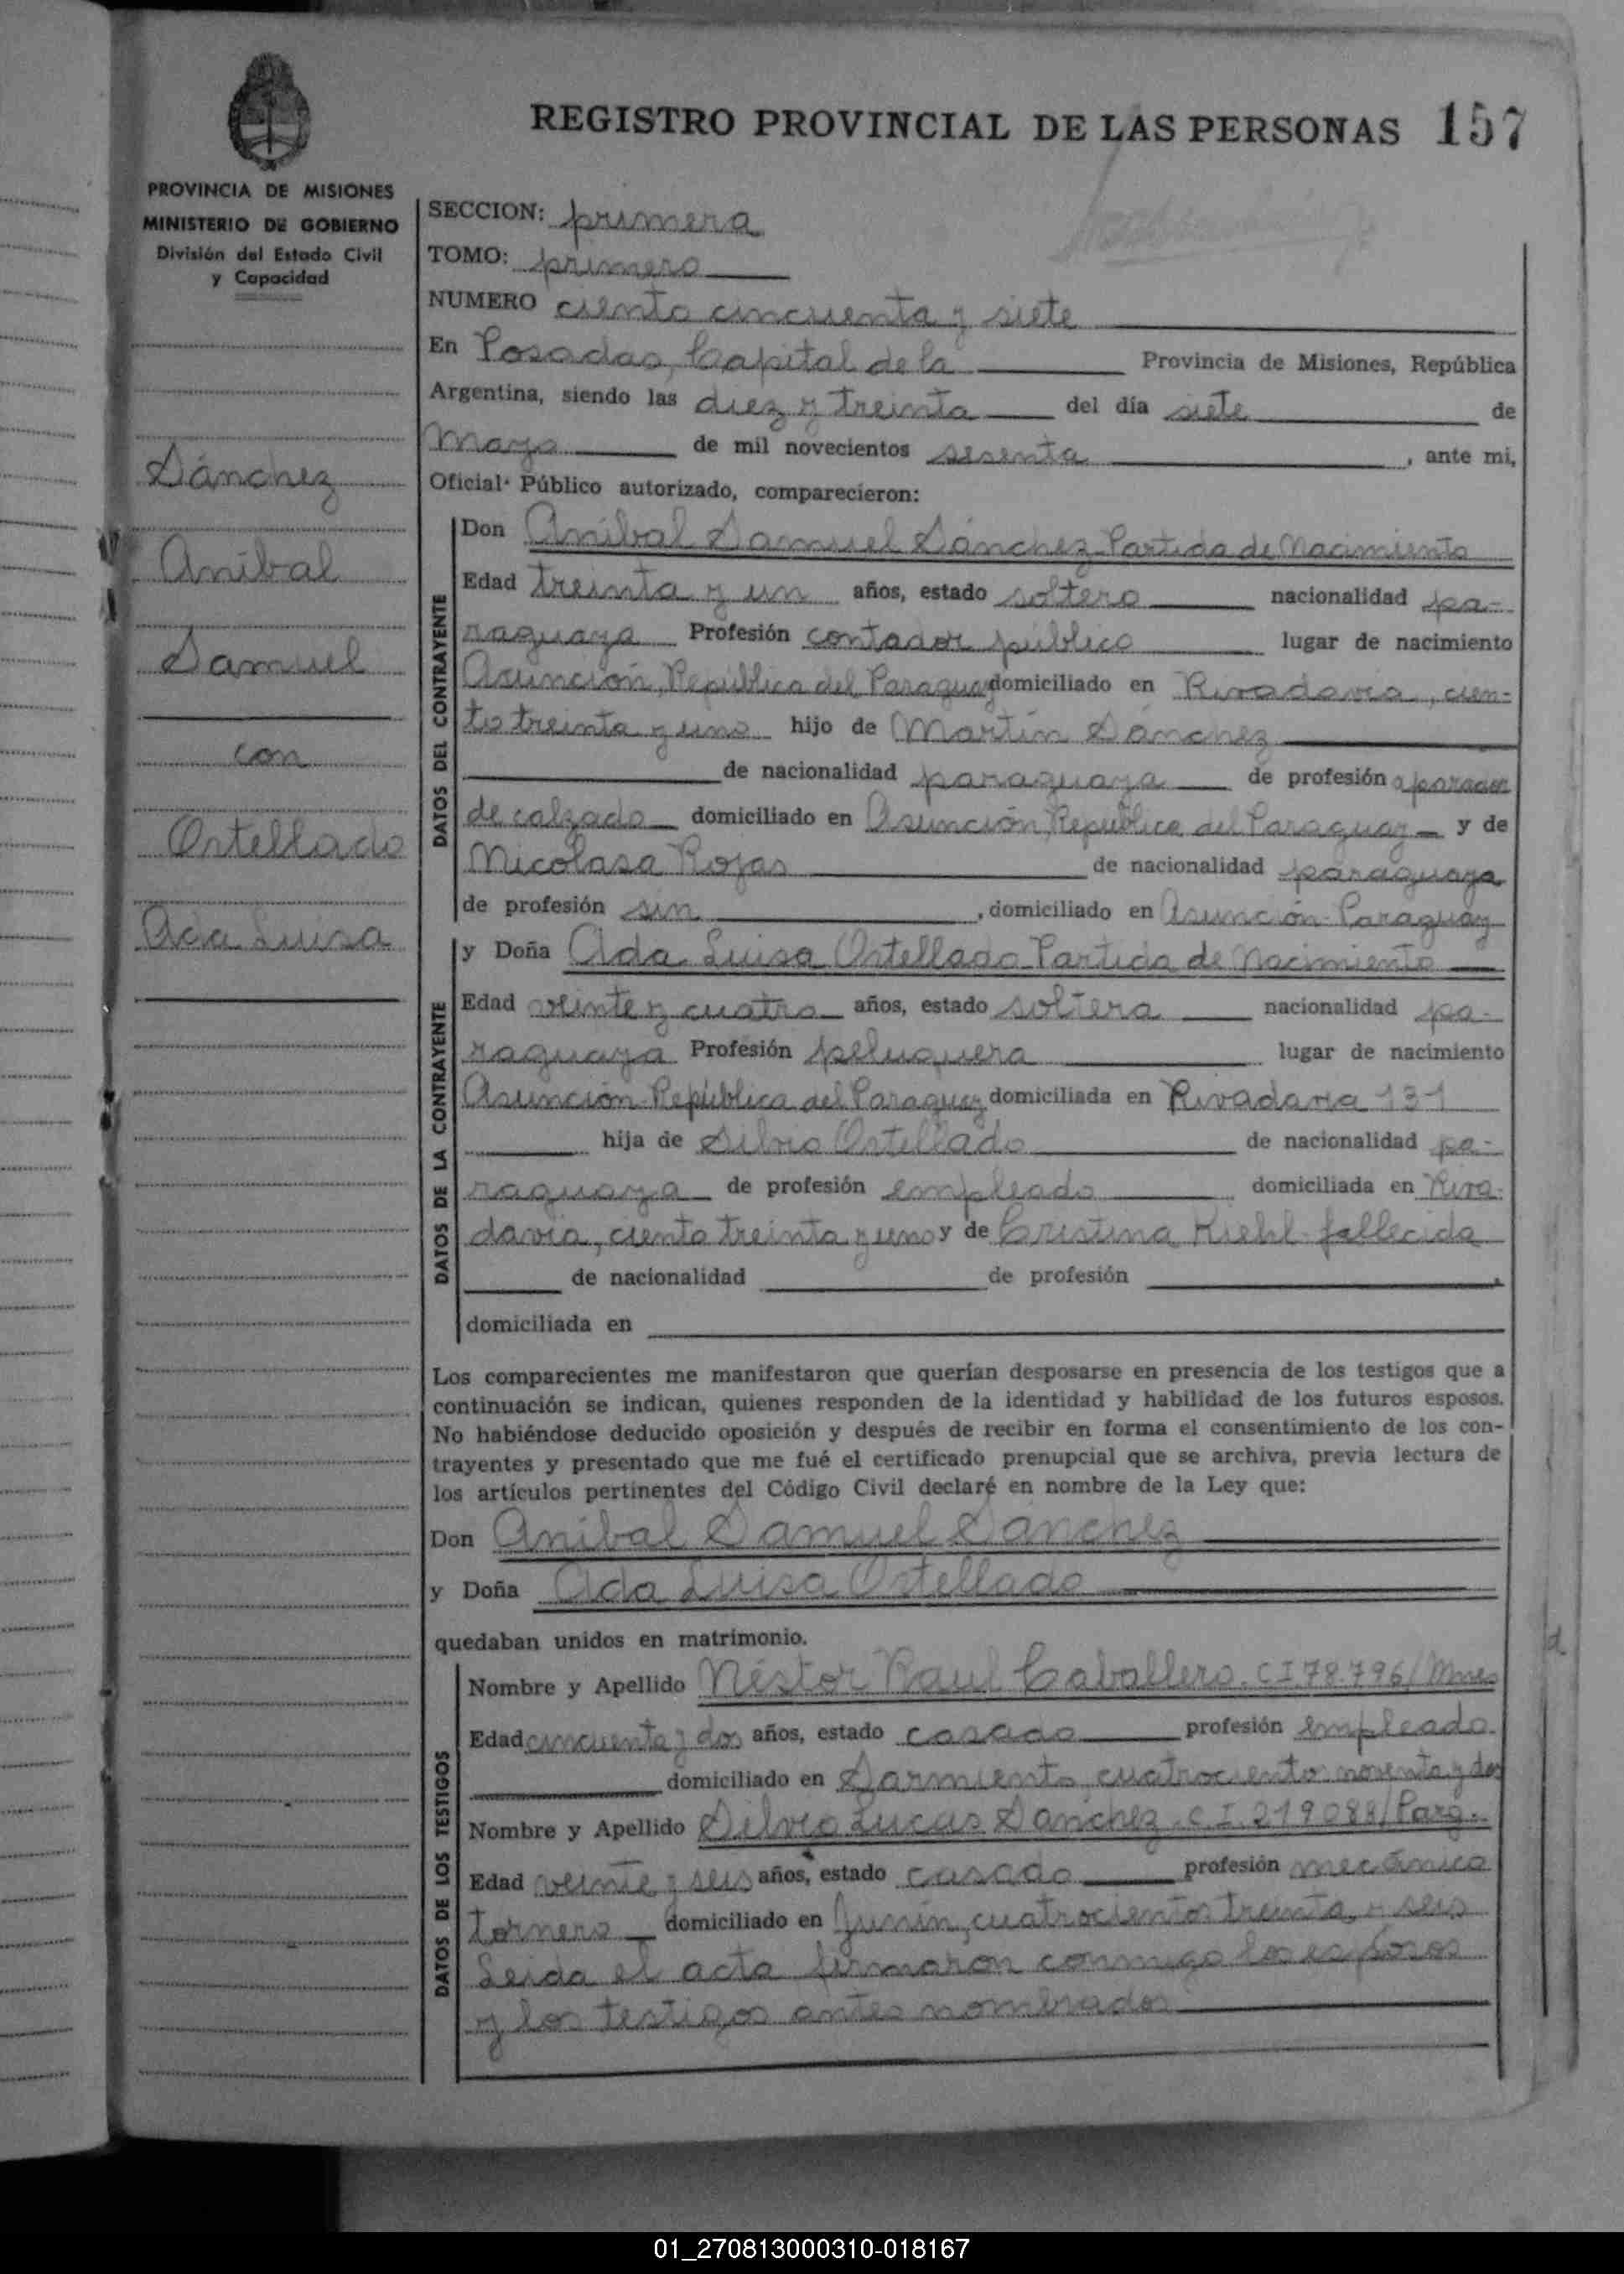 REGISTRO PROVINCIAL DE LAS PERSONAS 157
PROVINCIA DE MISIONES
MINISTERIO DE GOBIERNO
División del Estado Civil
y Capacidad
Sánchez
Aníbal
Samuel
con
Ortellado
Ada Luisa
SECCION: primera
TOMO: primero
NUMERO ciento cincuenta y siete
En Posadas, Capital de la Provincia de Misiones, República
Argentina, siendo las diez y treinta del día siete de
mayo de mil novecientos sesenta, ante mi,
Oficial Público autorizado, comparecieron:
DATOS DEL CONTRAYENTE
Don Aníbal Samuel Sánchez-Partida de Nacimiento
Edad treinta y un años, estado soltero nacionalidad pa-
raguaya Profesión contador público lugar de nacimiento
Asunción, República del Paraguay domiciliado en Rivadavia, cien-
to treinta y uno hijo de Martín Sánchez
de nacionalidad paraguaya de profesión aparador
de calzado domiciliado en Asunción, República del Paraguay y de
Nicolasa Rojas de nacionalidad paraguaya
de profesión sin, domiciliado en Asunción-Paraguay
DATOS DE LA CONTRAYENTE
y Doña Ada Luisa Ortellado-Partida de Nacimiento
Edad veinte y cuatro años, estado soltera nacionalidad pa-
raguaya Profesión peluquera lugar de nacimiento
Asunción-República del Paraguay domiciliada en Rivadavia 131
hija de Silvio Ortellado de nacionalidad pa-
raguaya de profesión empleado domiciliada en Riva-
davia, ciento treinta y uno y de Cristina Kiehl-fallecida
de nacionalidad de profesión
domiciliada en
Los comparecientes me manifestaron que querían desposarse en presencia de los testigos que a
continuación se indican, quienes responden de la identidad y habilidad de los futuros esposos.
No habiéndose deducido oposición y después de recibir en forma el consentimiento de los con-
trayentes y presentado que me fué el certificado prenupcial que se archiva, previa lectura de
los artículos pertinentes del Código Civil declaré en nombre de la Ley que:
Don Aníbal Samuel Sánchez
y Doña Ada Luisa Ortellado
quedaban unidos en matrimonio.
DATOS DE LOS TESTIGOS
Nombre y Apellido Néstor Raul Caballero. C I 78.796/Mnes
Edad cincuenta y dos años, estado casado profesión empleado
domiciliado en Sarmiento cuatrocientos noventa y dos
Nombre y Apellido Silvio Lucas Sánchez. C.I. 219088/Parg.
Edad veinte y seis años, estado casado profesión mecánico
tornero domiciliado en Junín, cuatrocientos treinta y seis
Leida el acta firmaron conmigo los esposos
y los testigos antes nombrados
01_270813000310-018167